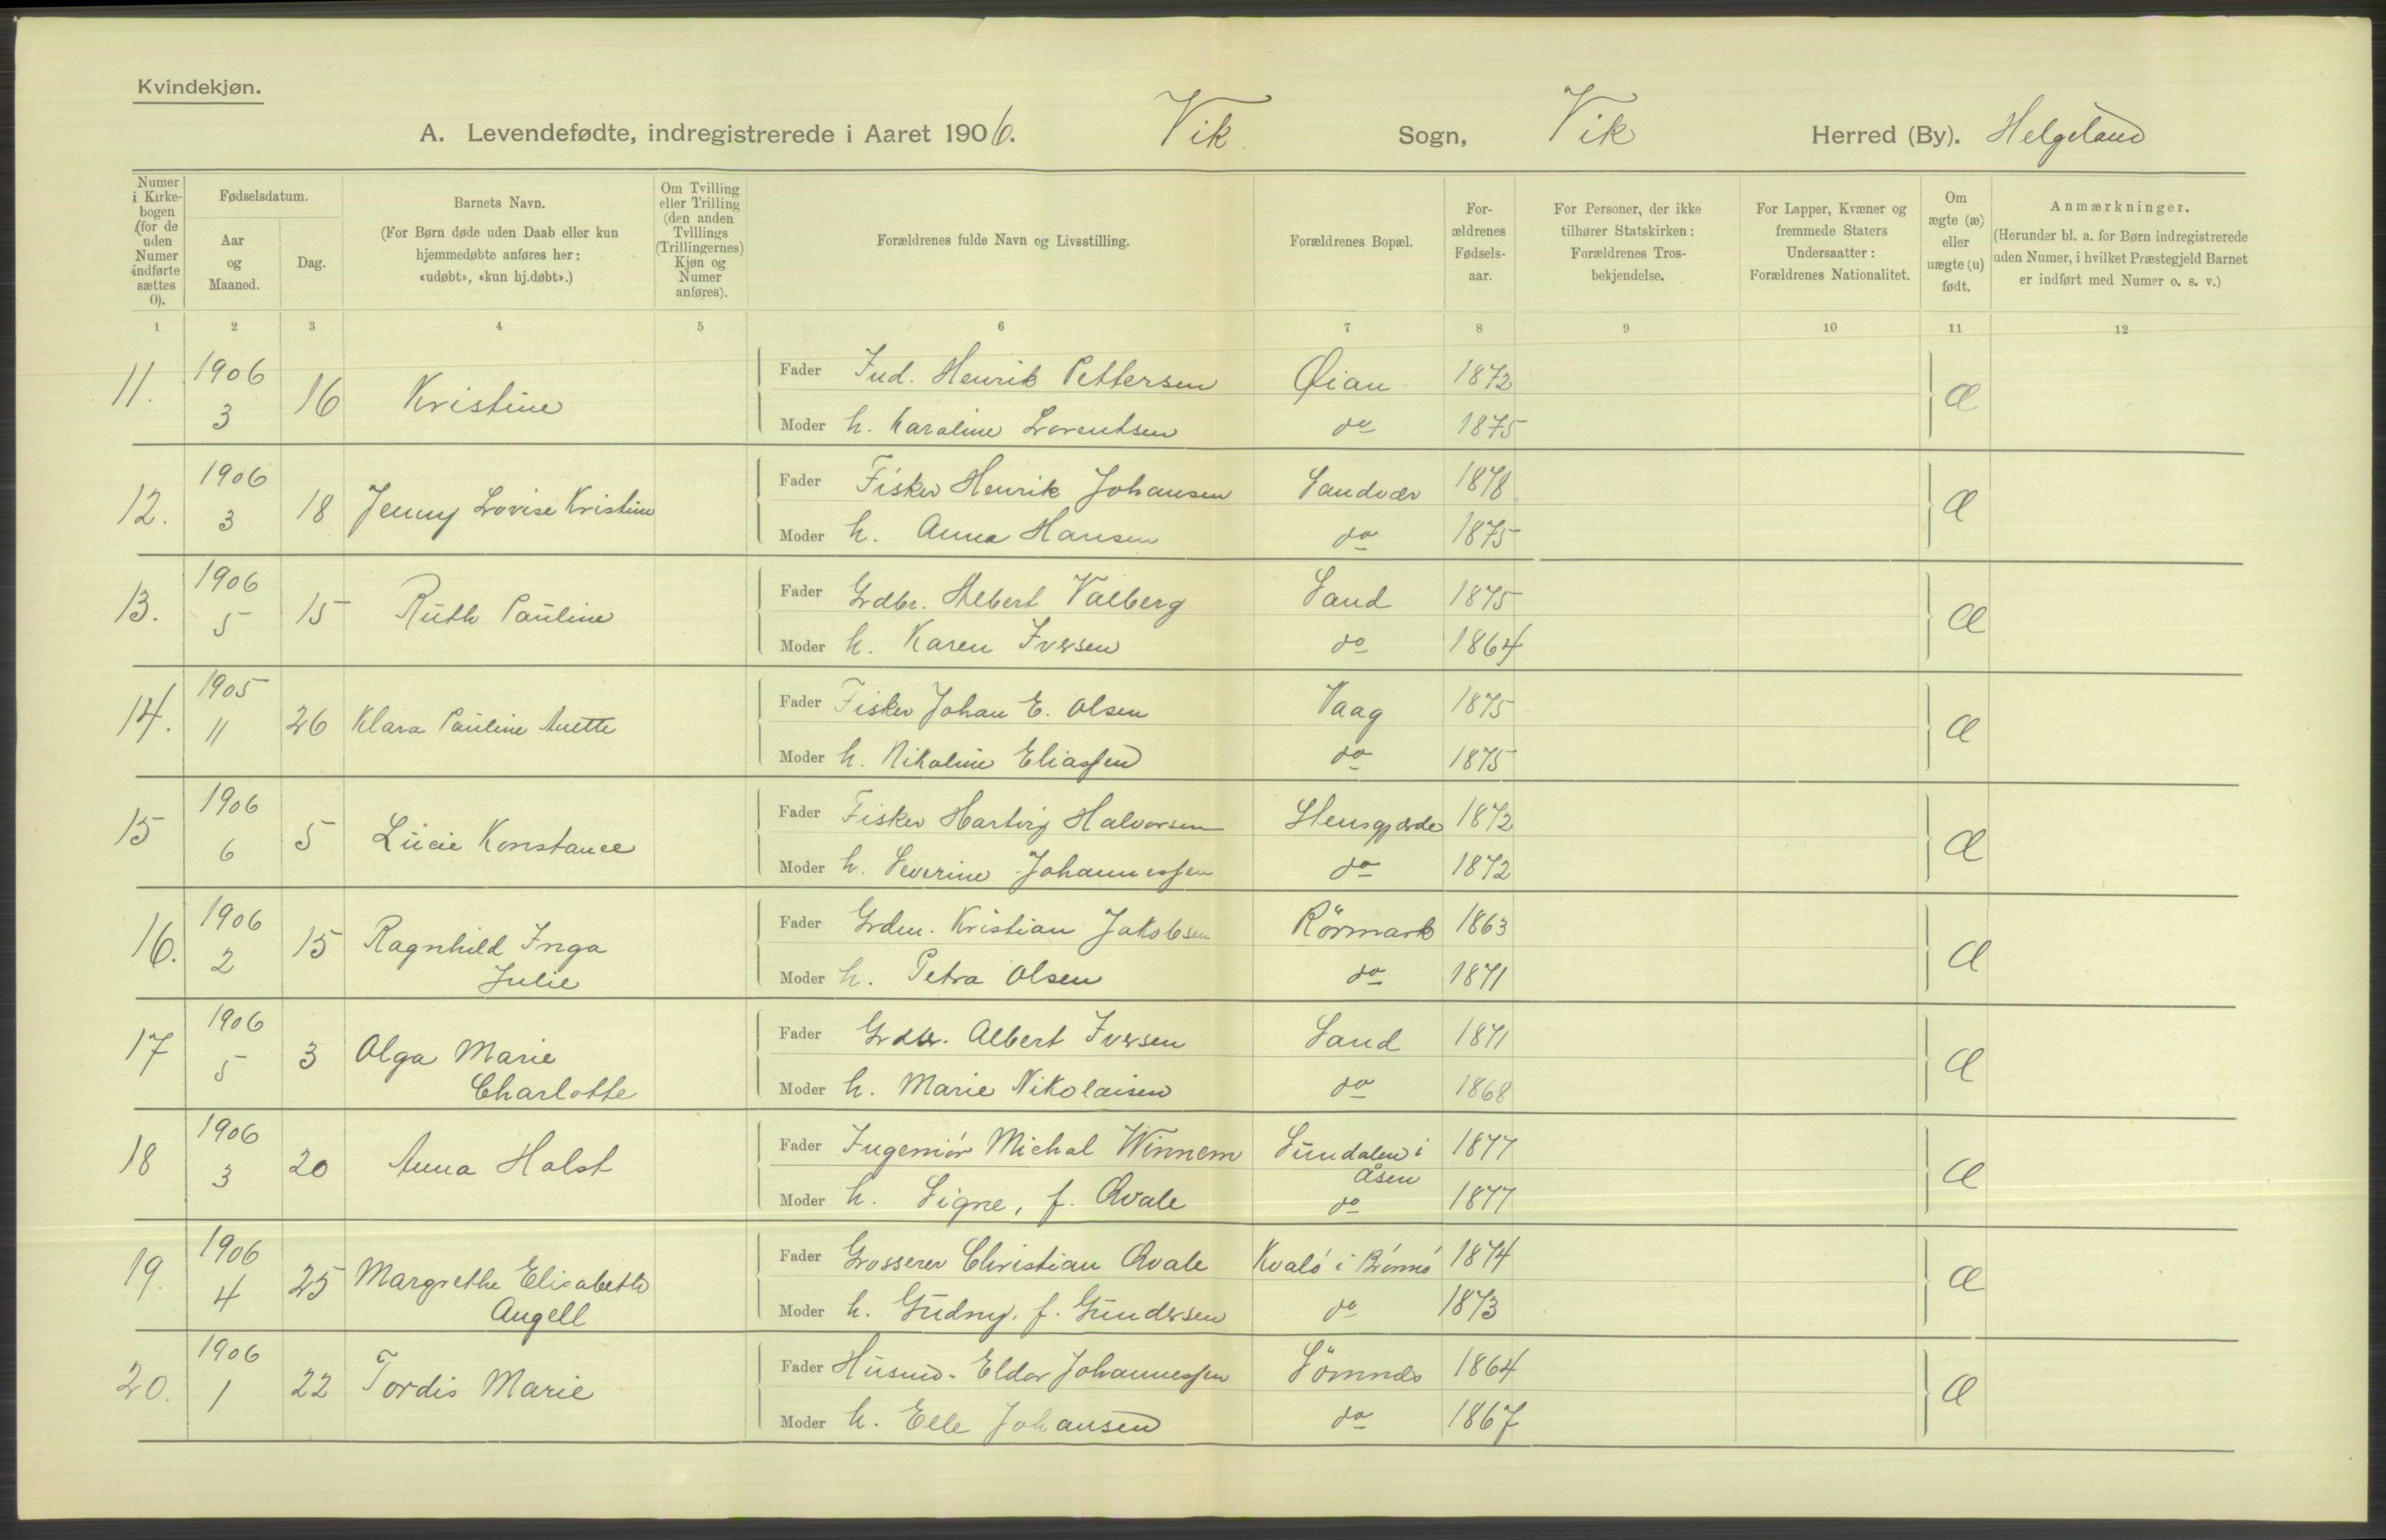 Kvindekjøn.
A. Levendefødte, indregistrerede i Aaret 1906. Vik Sogn, Vik Herred (By). Helgeland
Numer i Kirkebogen (for de uden Numer indførte sættes 0).
Fødselsdatum.
Aar og Maaned.
Dag.
Barnets Navn.
(For Børn døde uden Daab eller kun hjemmedøbte anføres her: «udøbt», «kun hj.døbt».)
Om Tvilling eller Trilling (den anden Tvillings (Trillingernes) Kjøn og Numer anføres).
Forældrenes fulde Navn og Livsstilling.
Forældrenes Bopæl.
For- ældrenes Fødsels- aar.
For Personer, der ikke tilhører Statskirken: Forældrenes Tros- bekjendelse.
For Lapper, Kvæner og fremmede Staters Undersaatter: Forældrenes Nationalitet.
Om ægte (æ) eller uægte (u) født.
Anmærkninger.
(Herunder bl. a. for Børn indregistrerede uden Numer, i hvilket Præstegjeld Barnet er indført med Numer o. s. v.)
1 2 3 4 5 6 7 8 9 10 11 12
11. 1906 3 16 Kristine Fader Ind. Henrik Pettersen Øian 1872 æ
Moder h. Karoline Lorentsen do 1875
12. 1906 3 18 Jenny Lovise Kristine Fader Fisker Henrik Johansen Sandvær 1878 æ
Moder h. Anna Hansen do 1875
13. 1906 5 15 Ruth Pauline Fader Grdbr. Albert Valberg Sand 1875 æ
Moder h. Karen Iversen do 1864
14. 1905 11 26 Klara Pauline Anette Fader Fisker Johan E. Olsen Vaag 1875 æ
Moder h. Nikoline Eliassen do 1875
15 1906 6 5 Lucie Konstance Fader Fisker Hartvig Halvorsen Stensgjærde 1872 æ
Moder h. Severine Johannessen do 1872
16. 1906 2 15 Ragnhild Inga Julie Fader Grdm. Kristian Jakobsen Rörmark 1863 æ
Moder h. Petra Olsen do 1871
17 1906 5 3 Olga Marie Charlotte Fader Grdbr. Albert Iversen Sand 1871 æ
Moder h. Marie Nikolaisen do 1868
18 1906 3 20 Anna Holst Fader Ingeniör Michal Winnem Sundalen i Åsen 1877 æ
Moder h. Signe, f. Qvale do 1877
19. 1906 4 25 Margrethe Elisabeth Angell Fader Grosserer Christian Qvale Kvalö i Brönnö 1874 æ
Moder h. Gudny, f. Gundersen do 1873
20. 1906 1 22 Tordis Marie Fader Husmd. Eldor Johannessen Sömnes 1864 æ
Moder h. Elle Johansen do 1867